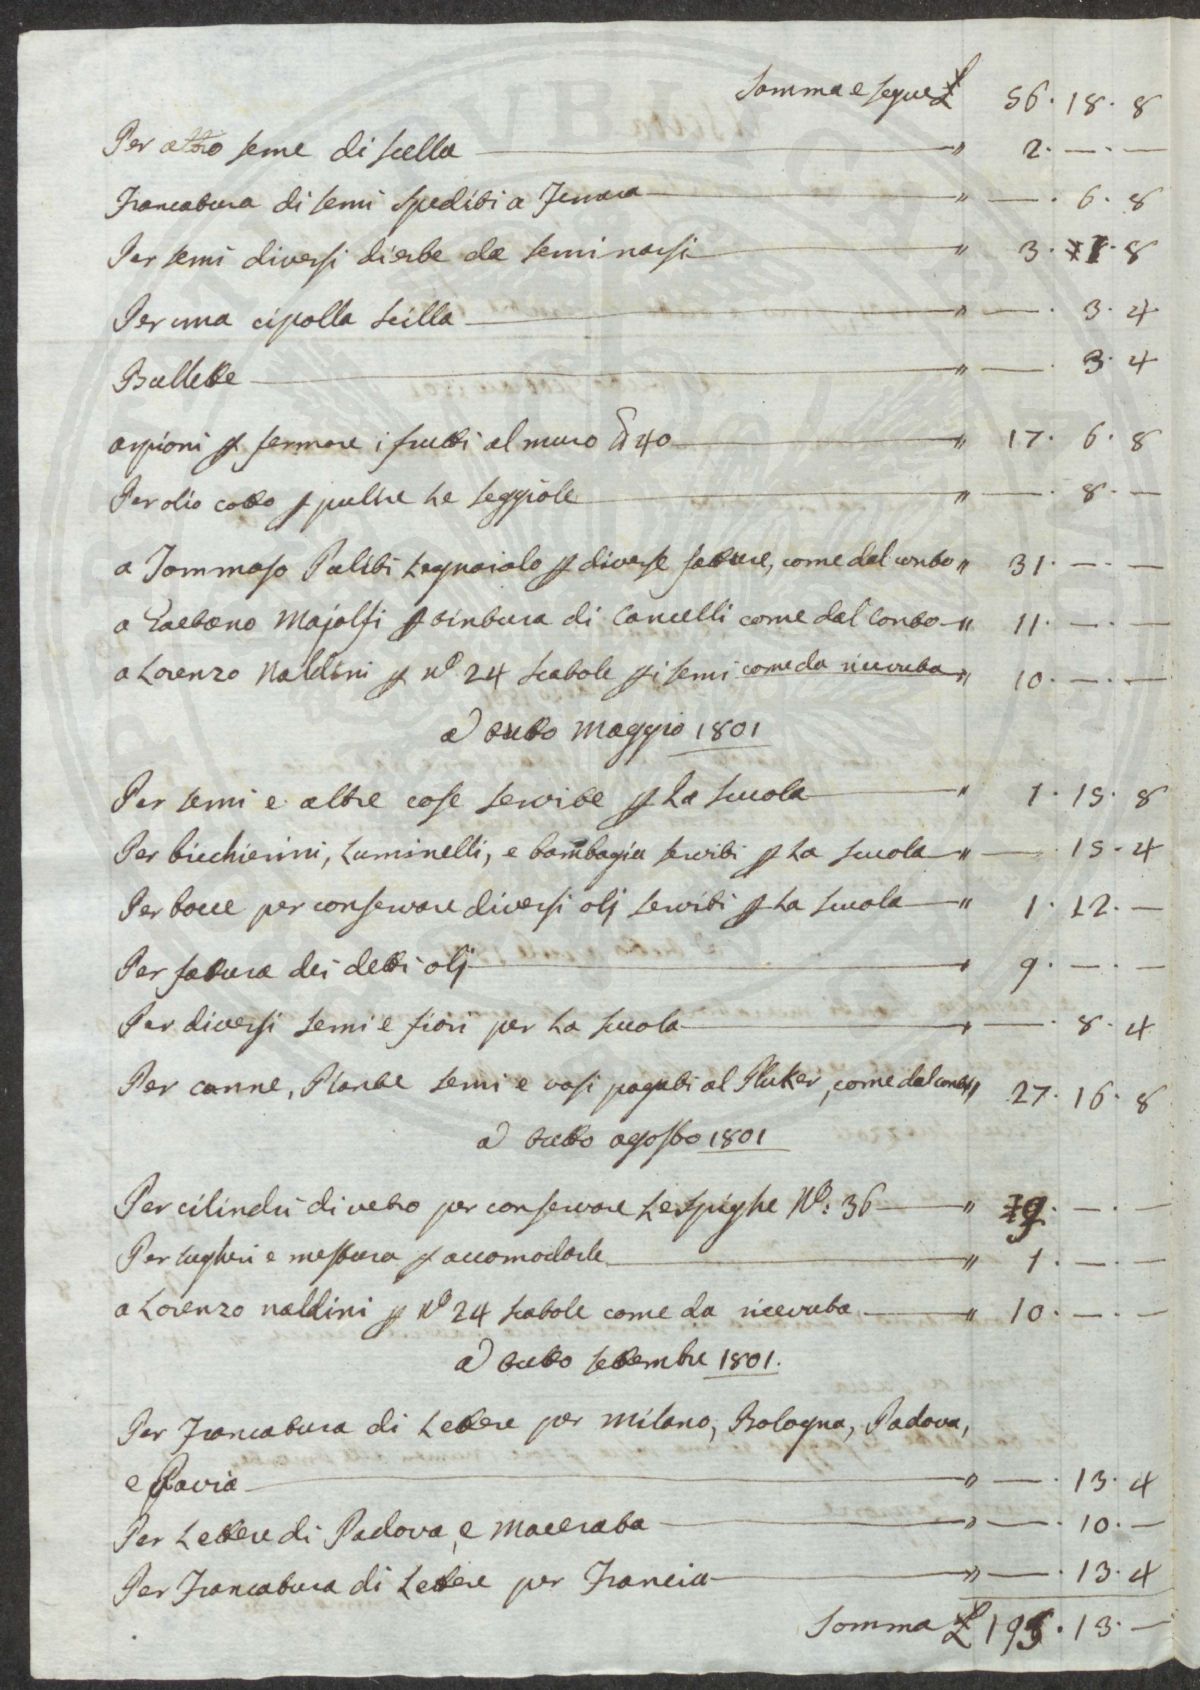 Somma e segue £ 56. 18. 8
Per altro seme di scella " 2. — . —
Francatura di semi spediti a Ferrara " — . 6. 8
Per semi diversi di erbe da seminarsi " 3. 1. 8
Per una cipolla scilla " — . 3. 4
Bullette " — . 3. 4
arpioni p fermare i frutti al muro 40 " 17. 6. 8
Per olio cotto p pulire le seggiole " — . 8. —
a Tommaso Puliti Legnaiolo p diverse fatture, come dal conto " 31. — . —
a Gaetano Majolfi p tintura di Cancelli come dal Conto " 11. — . —
a Lorenzo Naldini p N° 24 scatole p i semi come da ricevuta " 10. — . —
a tutto Maggio 1801
Per semi e altre cose servite p La Scuola " 1. 15. 8
Per bicchierini, Luminelli, e bambagia serviti p La Scuola " — 15. 4
Per bocce per conservare diversi olj serviti p La Scuola " 1. 12. —
Per fattura dei detti olj " 9. — . —
Per diversi semi e fiori per La scuola " — . 8. 4
Per canne, Piante semi e vasi pagati al Pluker, come dal conto " 27. 16. 8
a tutto agosto 1801
Per cilindri di vetro per conservare Le spighe N°: 36 " 9. — . —
Per sugheri e mestura p accomodarle " 1. — . —
a Lorenzo naldini p N° 24 scatole come da ricevuta " 10. — . —
a tutto settembre 1801.
Per Francatura di Lettere per Milano, Bologna, Padova,
e Pavia " — . 13. 4
Per Lettere di Padova, e Macerata " — . 10. —
Per Francatura di Lettere per Francia " — . 13. 4
Somma £ 195. 13. —